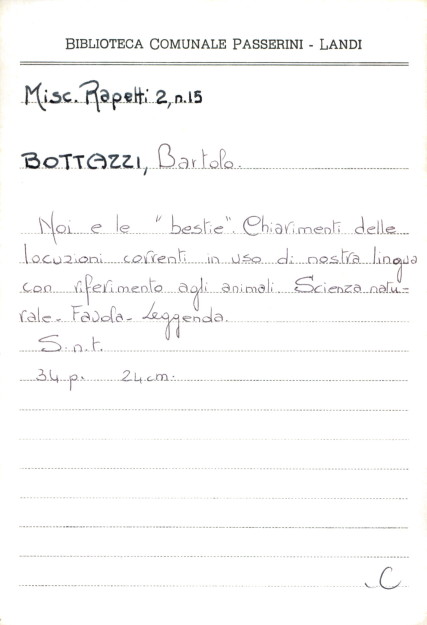 BIBLIOTECA COMUNALE PASSERINI - LANDI
Misc. Rapetti 2, n.15
BOTTAZZI, Bartolo.
Noi e le "bestie". Chiarimenti delle
locuzioni correnti in uso di nostra lingua
con riferimento agli animali. Scienza natu-
rale - Favola - Leggenda.
S.n.t.
34 p. 24 cm.
C